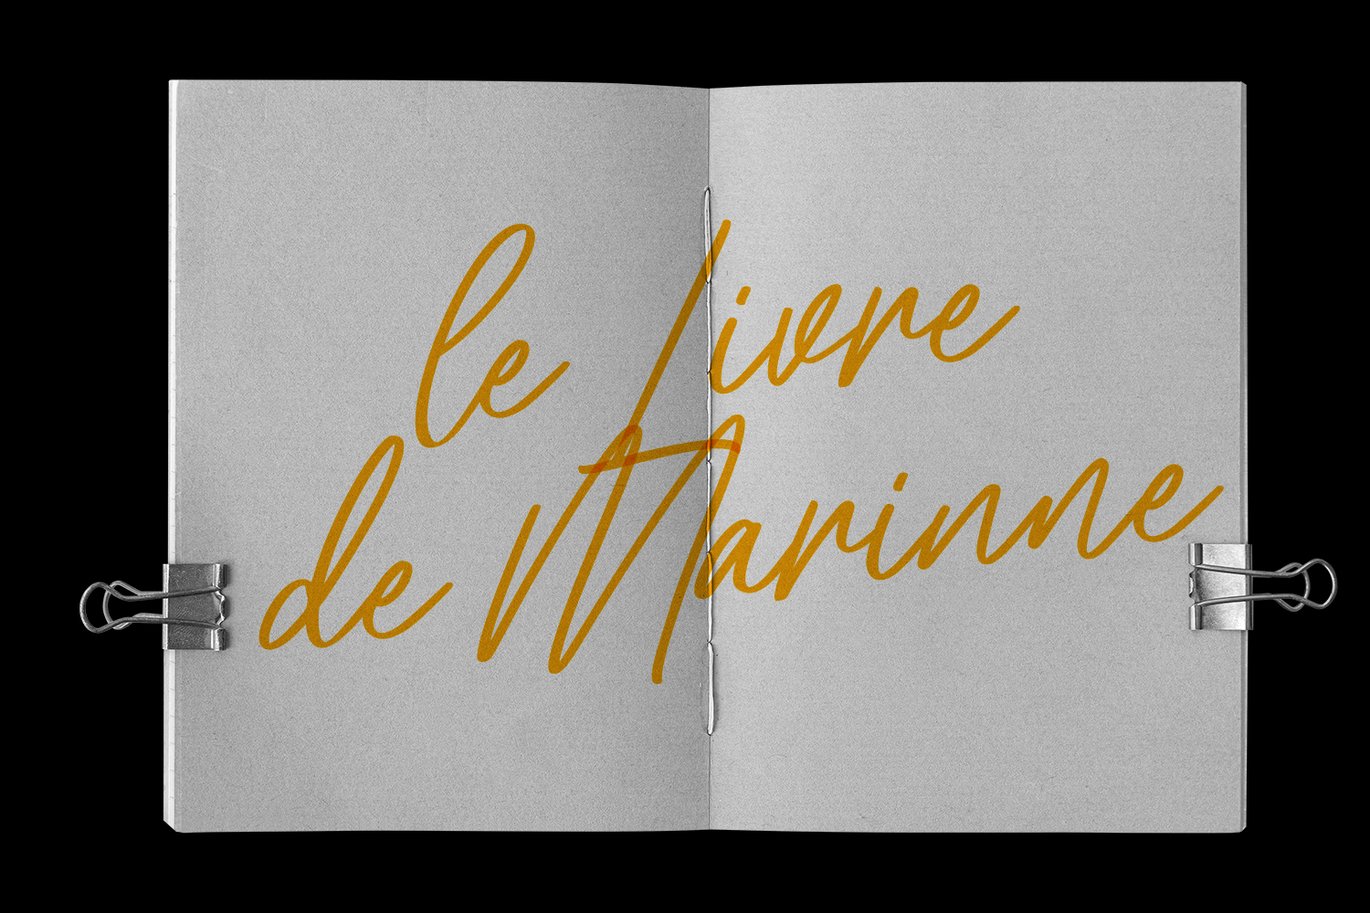 le Livre
de Marinne